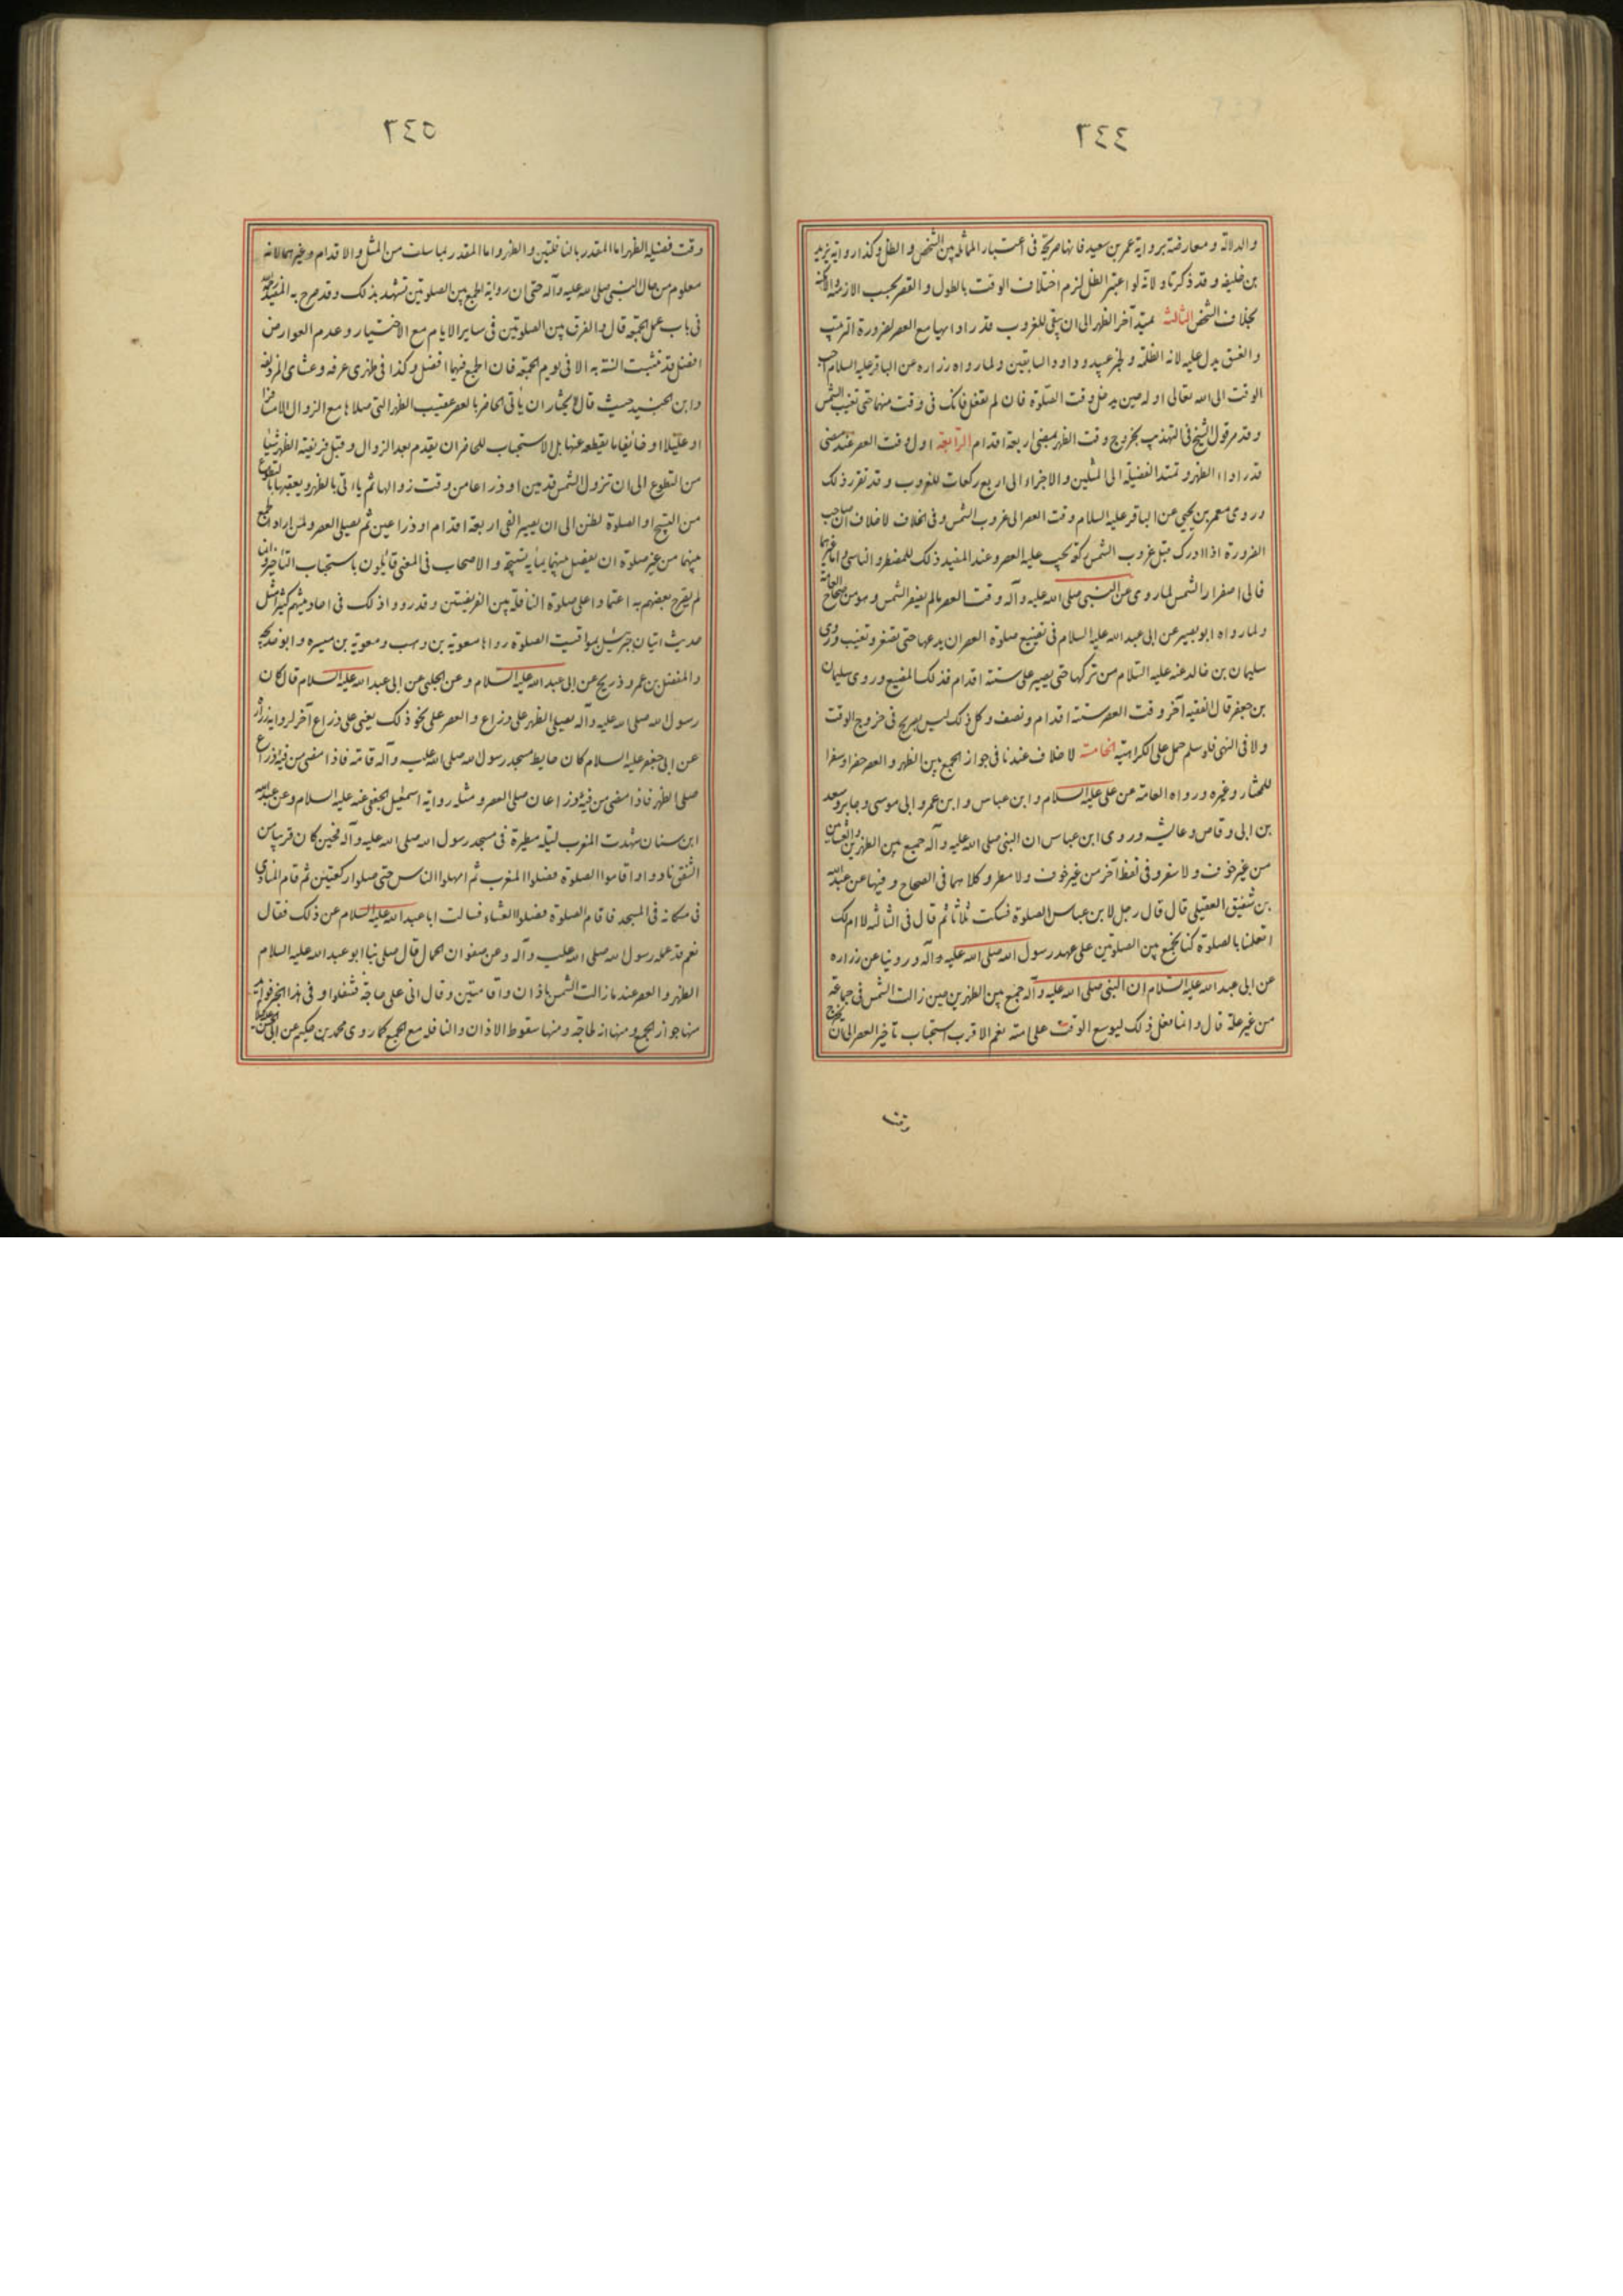 ٤٤٦
والدلالة ومعارضته برواية عمر بن سعيد فانها صريحة فى اعتبار المماثلة بين الشخص والظل وكذا رواية يزيد
بن خليفه وقد ذكرنا ولانه لو اعتبر الظل لزم اختلاف الوقت بالطول والقصر بحسب الازمنة والامكنة
بخلاف الشخص الثالثة يمتد آخر الظهر الى ان يبقى للغروب قدر ادائها مع العصر لضرورة الترتيب
والغسق يدل عليه لانه الظلمة ولخبر عبيد وداود السابقين ولما رواه زراره عن الباقر عليه السلام احب
الوقت الى الله تعالى اوله حين يدخل وقت الصلوة فان لم تفعل فانك فى وقت منهما حتى تغيب الشمس
وقد مر قول الشيخ فى التهذيب بخروج وقت الظهر بمضى اربعة اقدام الرابعة اول وقت العصر عند مضى
قدر اداء الظهر وتمتد الفضيلة الى المثلين والاجزاء الى اربع ركعات للغروب وقد تقرر ذلك
وروى معمر بن يحيى عن الباقر عليه السلام وقت العصر الى غروب الشمس وفى الخلاف لا خلاف ان صاحب
الضرورة اذا ادرك قبل غروب الشمس ركعة يجب عليه العصر وعند المفيد ذلك للمضطر والناسى اما غيرهما
فالى اصفرار الشمس لما روى عن النبى صلى الله عليه وآله وقت العصر ما لم يصفر الشمس وهو من صحاح العامة
ولما رواه ابو بصير عن ابى عبد الله عليه السلام فى تضييع صلوة العصر ان يدعها حتى تصفر وتغيب وروى
سليمان بن خالد عنه عليه السلام من تركها حتى يصير على ستة اقدام فذلك المضيع وروى سليمان
بن جعفر قال الفقيه آخر وقت العصر ستة اقدام ونصف وكل ذلك ليس بصريح فى خروج الوقت
ولا فى النهى فلو سلم حمل على الكراهية الخامسة لا خلاف عندنا فى جواز الجمع بين الظهر والعصر حضرا وسفرا
للمختار وغيره ورواه العامة عن على عليه السلام وابن عباس وابن عمر وابى موسى وجابر وسعد
بن ابى وقاص وعائشه وروى ابن عباس ان النبى صلى الله عليه وآله جمع بين الظهرين والعشائين
من غير خوف ولا سفر وفى لفظ آخر من غير خوف ولا مطر وكلاهما فى الصحاح وفيها عن عبد الله
بن شقيق العقيلى قال قال رجل لابن عباس الصلوة فسكت ثلاثا ثم قال فى الثالثه لا ام لك
اتعلمنا بالصلوة كنا نجمع بين الصلوتين على عهد رسول الله صلى الله عليه وآله وروينا عن زراره
عن ابى عبد الله عليه السلام ان النبى صلى الله عليه وآله جمع بين الظهرين حين زالت الشمس فى جماعة
من غير علة قال وانما فعل ذلك ليوسع الوقت على امته نعم الاقرب استحباب تأخير العصر الى ان يخرج
وقت
٥٤٦
وقت فضيلة الظهر اما المقدر بالنافلتين والظهر واما المقدر بما سلف من المثل والاقدام وغيرهما لانه
معلوم من حال النبى صلى الله عليه وآله حتى ان رواية الجمع بين الصلوتين تشهد بذلك وقد صرح به المفيد رحمه الله
فى باب عمل الجمعة قال والفرق بين الصلوتين فى ساير الايام مع الاختيار وعدم العوارض
افضل قد ثبتت السنة به الا فى يوم الجمعة فان الجمع فيهما افضل وكذا فى ظهرى عرفه وعشاى المزدلفه
وابن الجنيد حيث قال لا نختار ان يأتى الحاضر بالعصر عقيب الظهر التى صلاها مع الزوال الا مسافرا
او عليلا او خائفا ما يقطعه عنها بل الاستحباب للحاضر ان يقدم بعد الزوال وقبل فريضة الظهر شيئا
من التطوع الى ان تزول الشمس قدمين او ذراعا من وقت زوالها ثم ياتى بالظهر ويعقبها بالتطوع
من التسبيح او الصلوة لظن الى ان يصير الفى اربعة اقدام او ذراعين ثم يصلى العصر ولمن اراد الجمع
بينهما من غير صلوة ان يفصل بينهما بمايه تسبيحه والاصحاب فى المعنى قايلون باستحباب التأخير وانما
لم يصرح بعضهم به اعتمادا على صلوة النافلة بين الفريضتين وقد رووا ذلك فى احاديثهم كثيرا مثل
حديث اتيان جبرئيل بمواقيت الصلوة رواها معوية بن وهب ومعوية بن ميسره وابو خديجه
والمفضل بن عمر وذريح عن ابى عبد الله عليه السلام وعن الحلبى عن ابى عبد الله عليه السلام قال كان
رسول الله صلى الله عليه وآله يصلى الظهر على ذراع والعصر على نحو ذلك يعنى على ذراع آخر لرواية زراره
عن ابى جعفر عليه السلام كان حايط مسجد رسول الله صلى الله عليه وآله قامة فاذا مضى من فيئه ذراع
صلى الظهر فاذا مضى من فيئه ذراعان صلى العصر ومثله رواية اسمعيل الجعفى عنه عليه السلام وعن عبد الله
ابن سنان شهدت المغرب ليلة مطيرة فى مسجد رسول الله صلى الله عليه وآله فحين كان قريبا من
الشفق نادوا واقاموا الصلوة فصلوا المغرب ثم امهلوا الناس حتى صلوا ركعتين ثم قام المنادى
فى مكانه فى المسجد فاقام الصلوة فصلوا العشاء فسالت ابا عبد الله عليه السلام عن ذلك فقال
نعم قد عمله رسول الله صلى الله عليه وآله وعن صفوان الجمال قال صلى بنا ابو عبد الله عليه السلام
الظهر والعصر عند ما زالت الشمس باذان واقامتين وقال انى على حاجة فتنفلوا وفى هذا الخبر فوائد
منها جواز الجمع ومنها انه لحاجة ومنها سقوط الاذان والنافلة مع الجمع كما روى محمد بن حكيم عن ابى الحسن